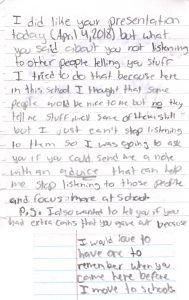 I did like your presentation
today (April 4, 2018) but what
you said about you not listening
to other people telling you stuff
I tried to do that because here
in this school I thought that some
people would be nice to me but no they
tell me stuff well some of them still
but I just can't stop listening
to them so I was going to ask
you if you could send me a note
with an advice that can help
me stop listening to those people
and focus more at school
P.S. I also want to tell you if you
had extra that you gave out because
I would love to
have one to
remember when you
came here before
I move to schools